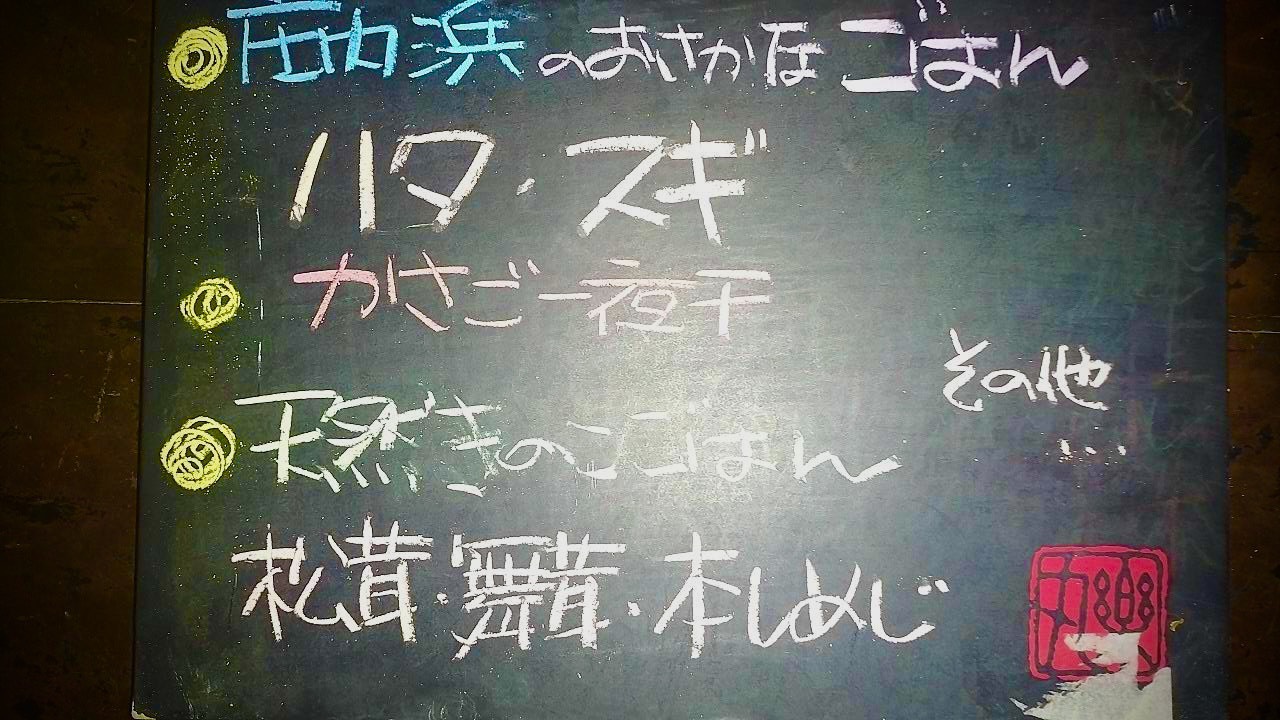 庄内浜のおさかなごはん
ハタ・スギ
かさご一夜干
その他
...
天然きのこごはん
松茸・舞茸・本しめじ